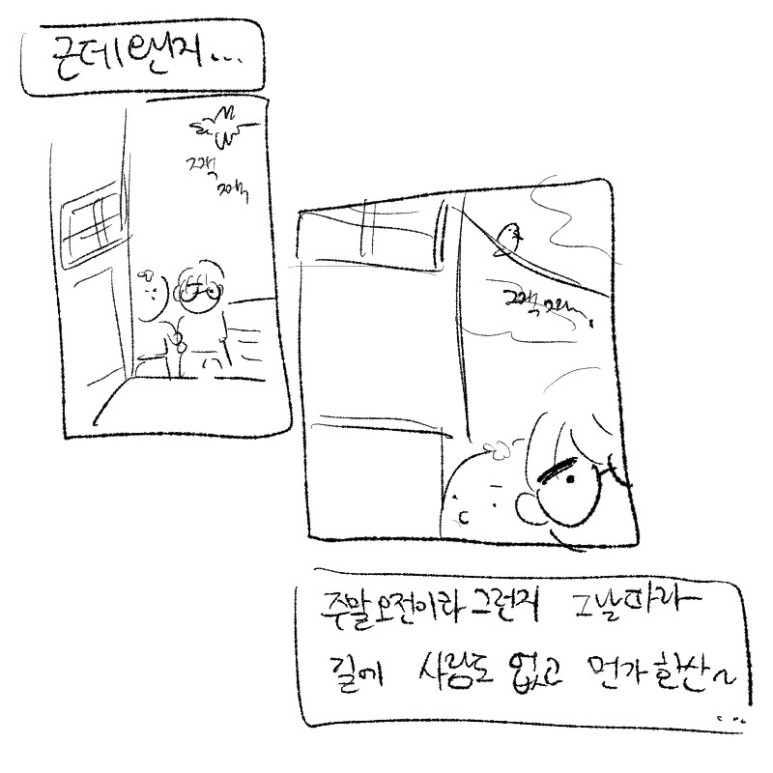 근데 왠지...
짹
짹
짹짹.
주말오전이라 그런지 그날따라
길에 사람도 없고 먼가 한산~
...